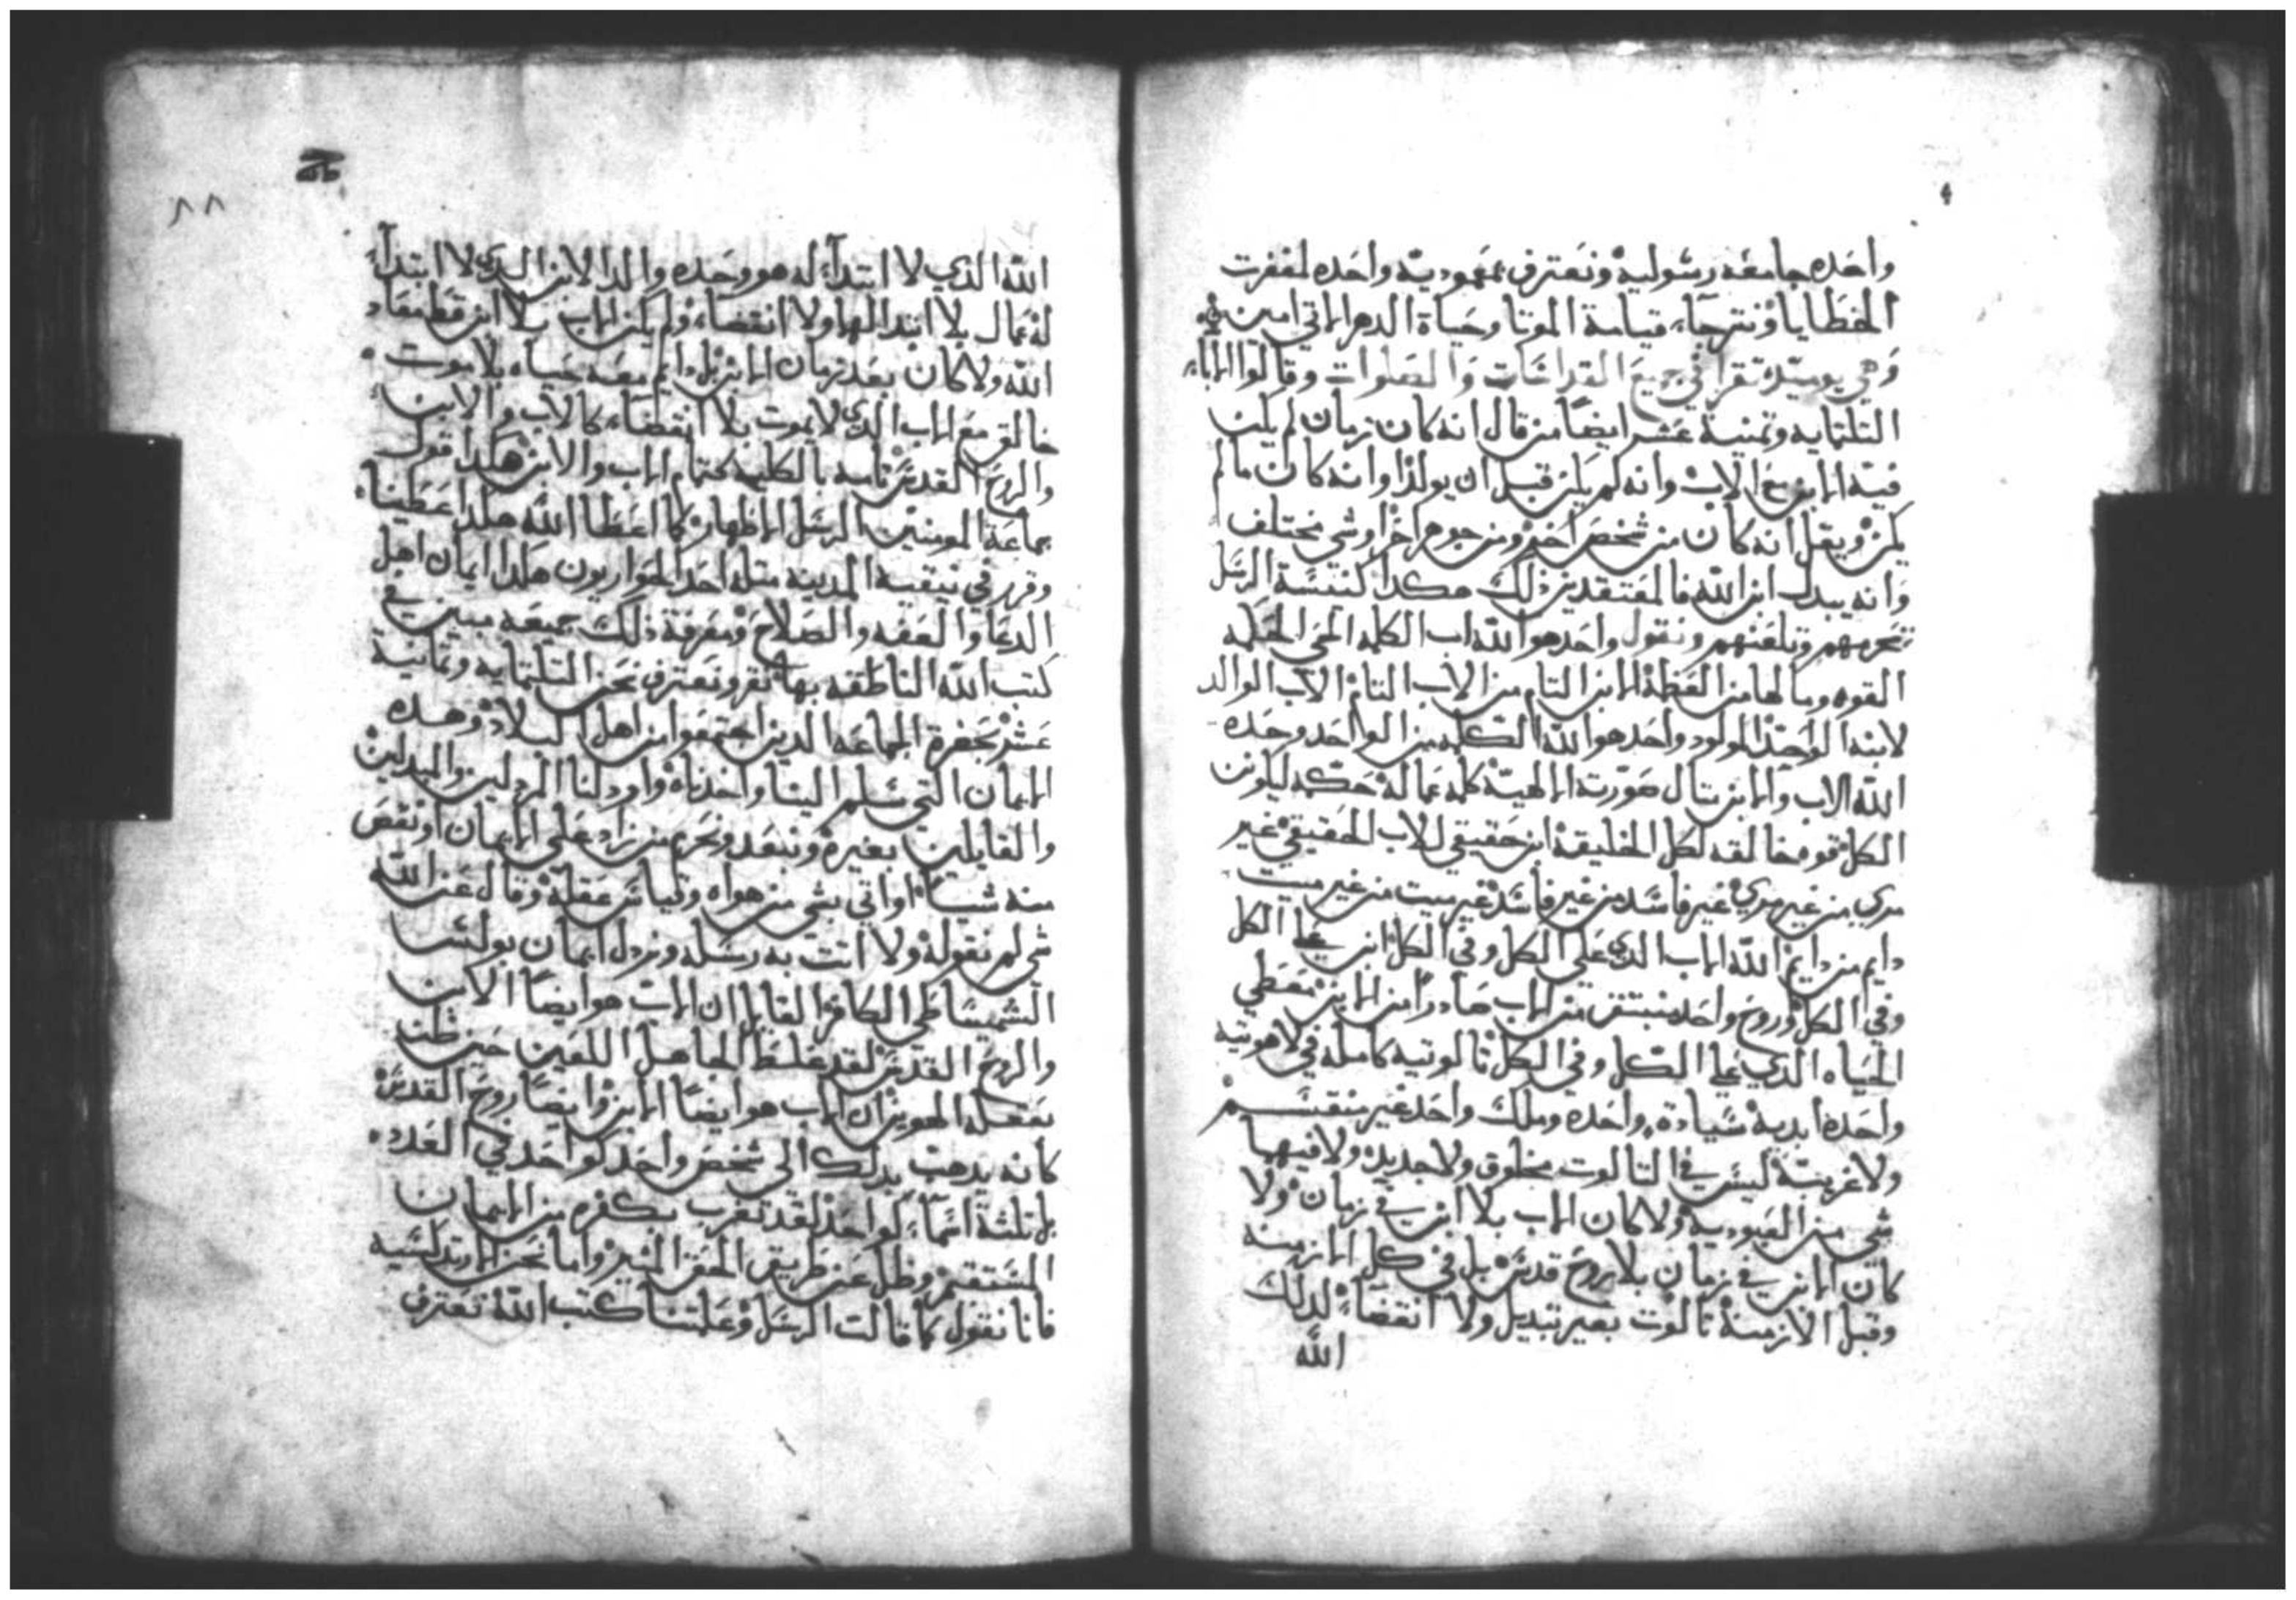 واحده جامعه رسولية ونعترف بمعمودية واحده لمغفرت
الخطايا ونترجاء قيامة الموتا وحياة الدهر الاتي امين
وهي يوميذ تقرا في جميع القداسات والصلوات وقالوا الاباء
التلتمايه وتمنية عشر ايضا من قال انه كان زمان لم يكن
فيه الابن مع الاب وانه لم يكن قبل ان يولد وانه كان مالم
يكن ويقل انه كان من شخص اخر ومن جوهر اخر او شي مختلف
وانه يبدل ابن الله فالمعتقدين ذلك هكدا كنيسة الرسل
تحرمهم وتلعنهم ونقول واحد هو الله اب الكلمه الحي الحكمه
القوه ومالها من العظة الابن التام من الاب التام الاب الوالد
لابنه الوحيد المولود واحد هو الله الكلمه من الواحد وحده
الله الاب والابن متال صورته الالهية كلمه عماله حكمه ليكونن
الكل قوه خالقه لكل الخليقة ابن حقيقي للاب الحقيقي غير
مري من غير مري غير فاسد من غير فاسد غير ميت من غير ميت
دايم من دايم الله الاب الدي علي الكل وفي الكل ابن علي الكل
وفي الكل وروح واحد منبتق من الاب صادرا من الابن معطي
الحياه الذي علي الكل وفي الكل تالوتيه كامله في لاهوتيه
واحده ابدية سيادة واحده وملك واحد غير منقسم
ولا غريبة ليس في التالوت مخلوق ولا جديد ولا فيهما
شي من العبودية ولا كان الاب بلا ابن في زمان ولا
كان الابن في زمان بلا روح قدس بل في كل الازمنه
وقبل الازمنة تالوت بغير تبديل ولا انقضاء لدلك
الله
٨٨
الله الذي لا ابتداء له هو وحده والد الابن الدي لا ابتداء
له عمال بلا ابتدا لها ولا انقضاء ولم يكن الاب بلا ابن قط معاد
الله ولا كان بعد زمان الابن بل دايم معه حياه بلا موت
خالق مع الاب الدي لا يموت بلا انقضاء كالاب والابن
والروح القدس تامه بالكليه كتمام الاب والابن هكدا قول
جماعة المومنين الرسل الاطهار كما اعطا الله هكدا اعطينا
وقرر في نيقية المدينه متله احد الحواريون هكدا ايمان اهل
الدعا والعفه والصلاح ومعرفة ذلك جميعه مبين في
كتب الله الناطقه بها نقر ونعترف نحن التلتمايه وتمانية
عشر بحضرة الجماعه الدين اجتمعوا من اهل البلاد وهده
الايمان التي سلم الينا واخدناه وارد لنا الردلين والمبدلين
والقايلين بغيره ونبعد ونحرم من زاد علي الايمان او نقص
منه شيا او اتي بشي من هواه وقياس عقله وقال عن الله
شي لم نقوله ولا اتت به رسله ونردل ايمان بولس
الشميساطي الكافر القايل ان الاب هو ايضا الابن
والروح القدس لقد غلط الجاهل اللعين حين ظن
بعقله الهوين ان الاب هو ايضا الابن وايضا روح القدس
كانه يدهب بدلك الي شخص واحد كواحد في العدد
بل تلتة اسماء لواحد لقد تغرب بكفره من الايمان
المستقيم وظل عن طريق الحق المنير واما نحن الارتدكسيه
فانا نقول كما قالت الرسل وعلمتنا كتب الله نعترف